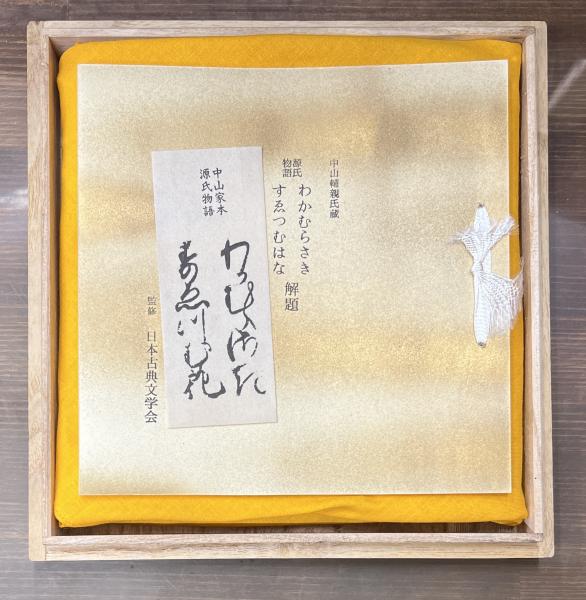 中山輔親氏蔵
源氏
物語
わかむらさき
すゑつむはな
解題
中山家本
源氏物語
わかむらさき
すゑつむ花
監修 日本古典文学会